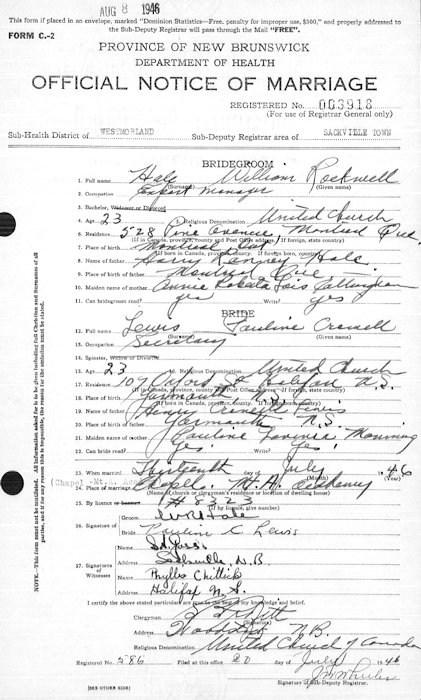 AUG 8 1946
This form if placed in an envelope, marked "Dominion Statistics—Free, penalty for improper use, $300," and properly addressed to
the Sub-Deputy Registrar will pass through the Mail "FREE".
FORM C.-2
PROVINCE OF NEW BRUNSWICK
DEPARTMENT OF HEALTH
OFFICIAL NOTICE OF MARRIAGE
REGISTERED No. 003918
(For use of Registrar General only)
Sub-Health District of WESTMORLAND Sub-Deputy Registrar area of SACKVILLE TOWN
BRIDEGROOM
1. Full name Hale William Rockwell
(Surname) (Given name)
2. Occupation Export Manager
3. Bachelor, Widower or Divorced
4. Age 23 Religious Denomination United Church
5. Residence 528 Pine Avenue, Montreal Que.
(If in Canada, province, county and Post Office address. If foreign, state country)
6. Place of birth Montreal Que
(If in Canada, province, county. If foreign born, country)
8. Name of father Harry Hale
9. Place of birth of father Montreal Que
10. Maiden name of mother Annie Lois
11. Can bridegroom read? yes yes
BRIDE
12. Full name Lewis Pauline Cromwell
(Surname) (Given name)
13. Occupation Secretary
14. Spinster, Widow or Divorced
15. Age 23 16. Religious Denomination United Church
17. Residence 109 Oxford St Halifax N.S.
18. Place of birth Yarmouth, N.S.
19. Name of father Henry Lewis
20. Place of birth of father Yarmouth N.S.
21. Maiden name of mother Pauline Lavinia Manning
22. Can bride read? Yes. Yes.
23. When married Thirteenth day of July 1946
(Month) (Year)
(Chapel -Mt. A.
24. Place of marriage Chapel. Mt. A. Academy
(Name of church or clergyman's residence or location of dwelling house)
25. By licence or banns # 8323
(If by licence, give number)
26. Signature of Groom WR Hale
Bride Pauline C Lewis
27. Signature of Witnesses
Name
Address Sackville N.B.
Name Phyllis Chittick
Address Halifax N.S.
I certify the above stated particulars are true to the best of my knowledge and belief.
Clergyman
(Signature)
Address N.B.
Religious Denomination United Church of Canada
Registered No. 586 Filed at this office 20 day of July 1946
Signature of Sub-Deputy Registrar.
[SEE OTHER SIDE]
NOTE.—This form must not be mutilated. All information asked for is to be given including full Christian and Surnames of all
parties, and if for any reason this is impossible, the reason for the omission must be stated.